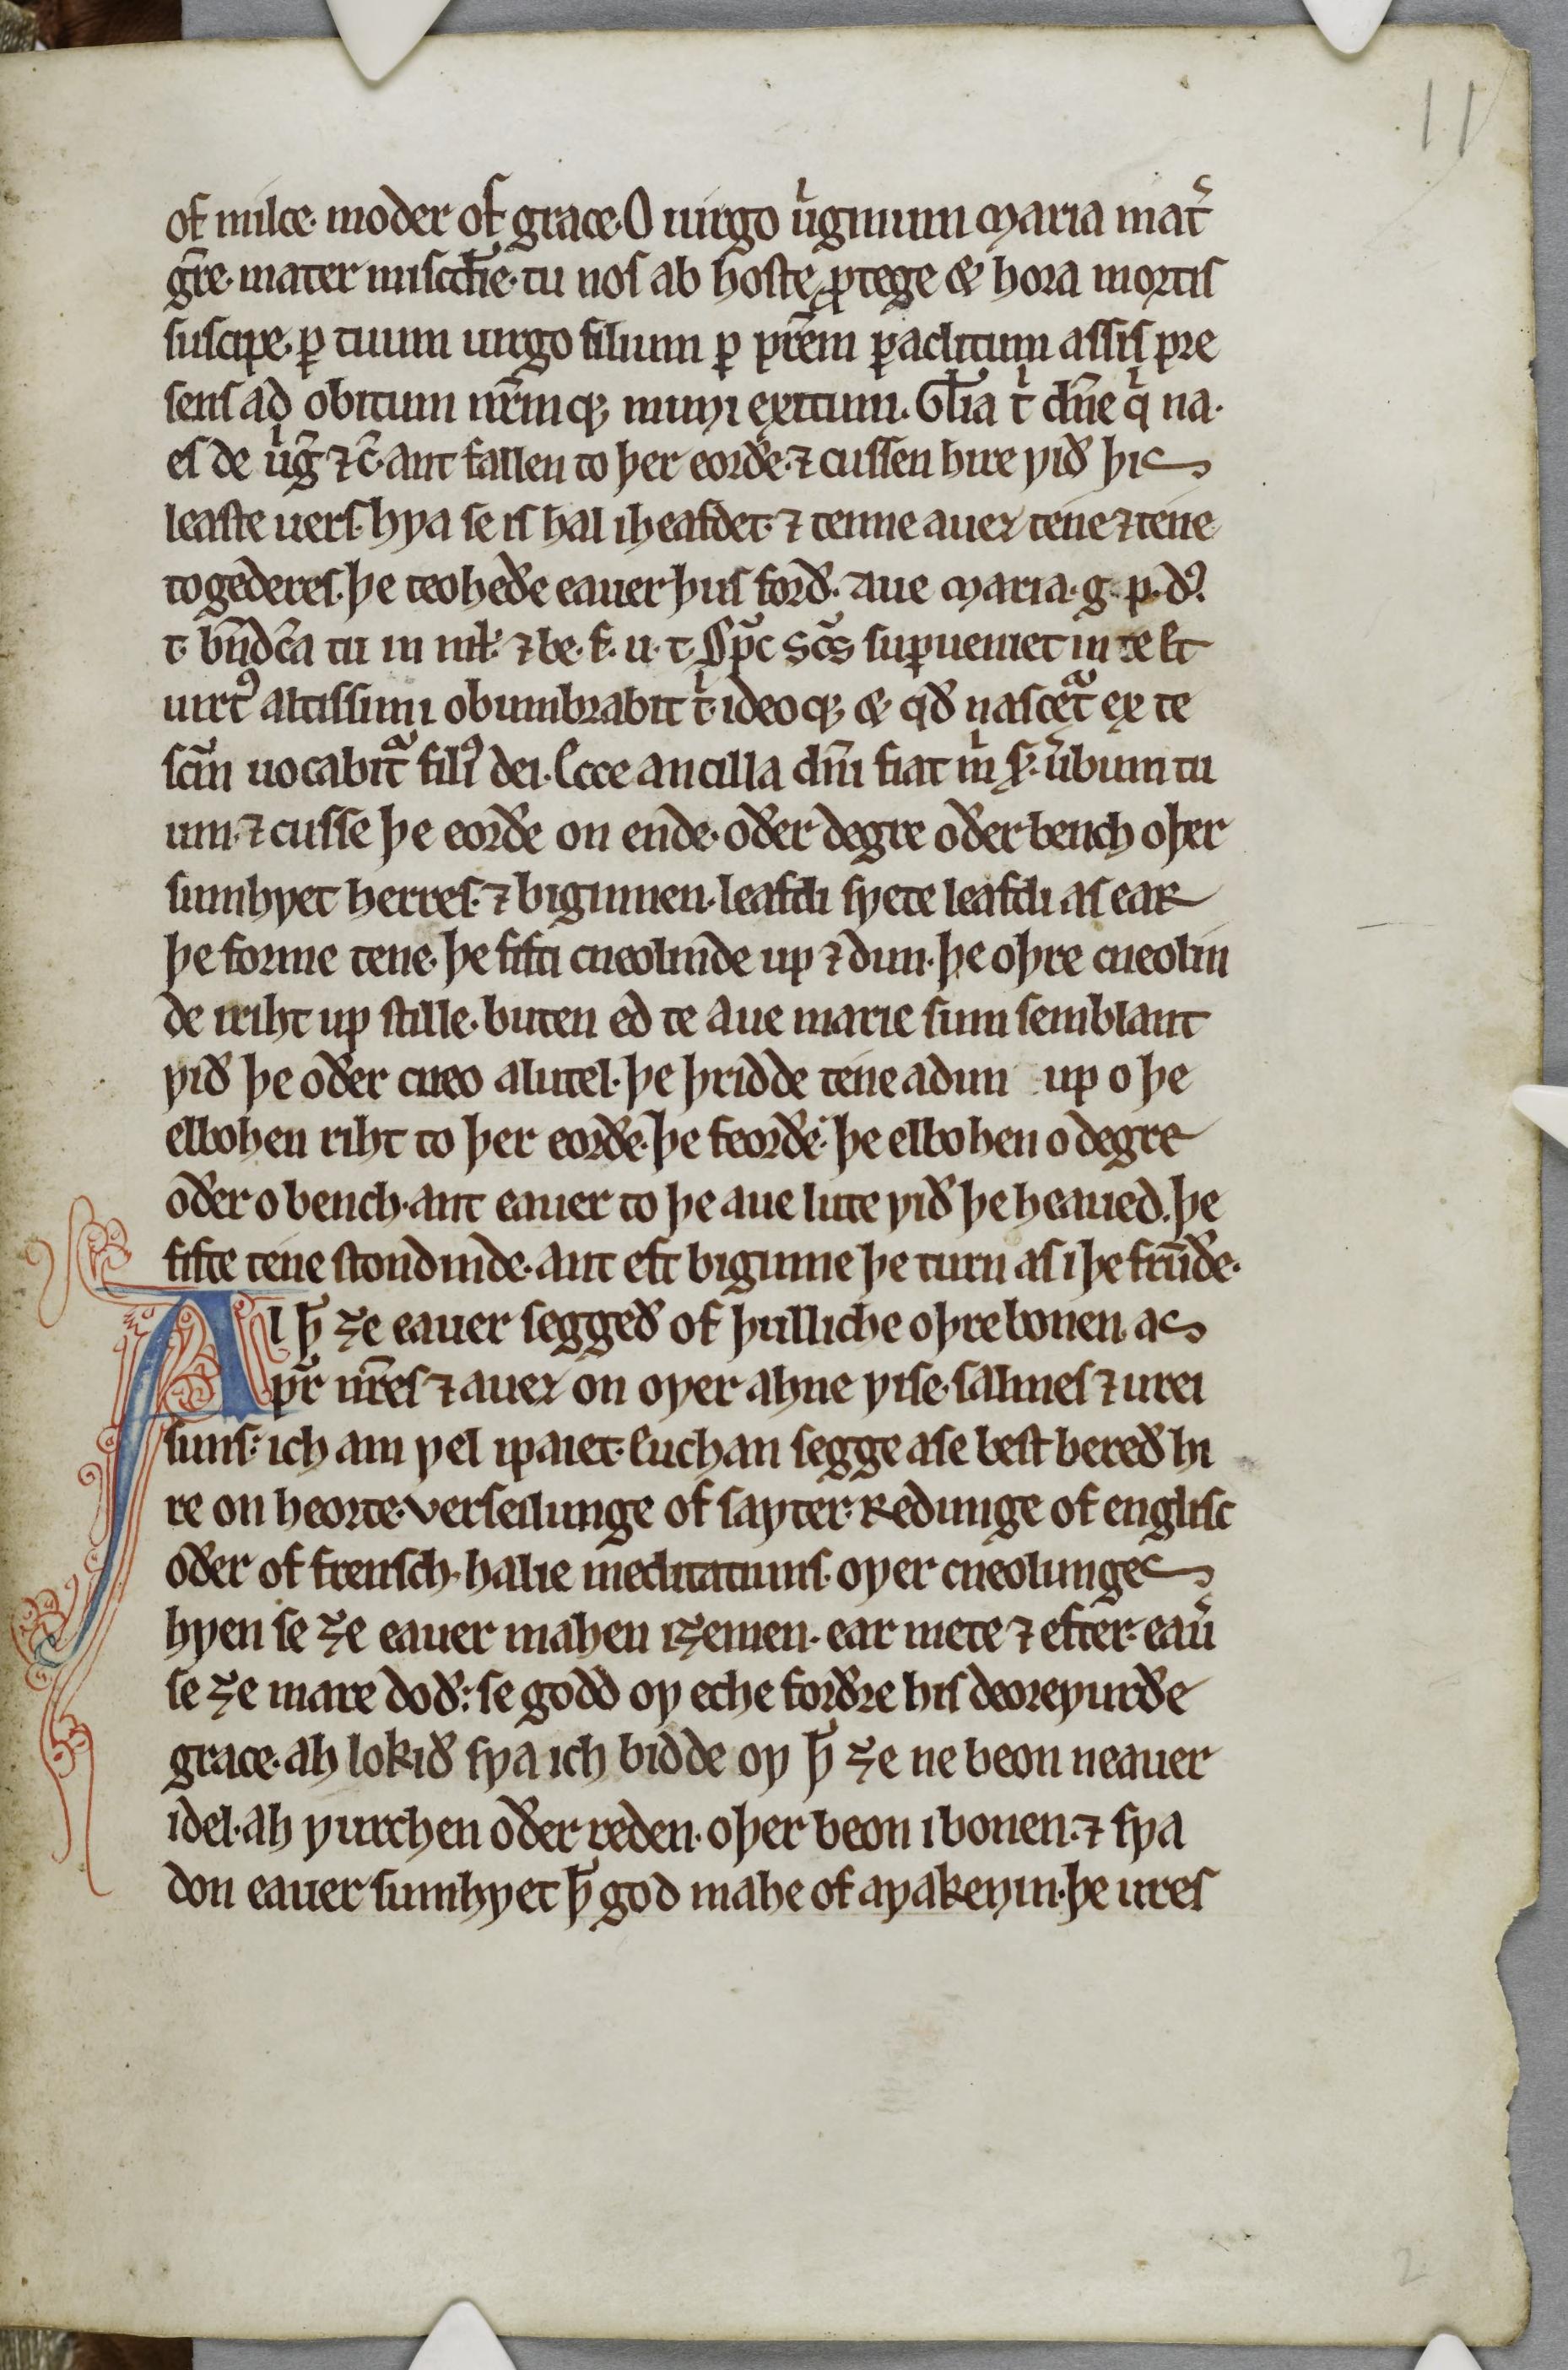 11
of milce· moder of grace· O uirgo v̓ginum maria mat̓
gr̄e· mater mis̄cdie· tu nos ab hoste ꝓtege & hora mortis
suscipe· ꝑ tuum uirgo filium ꝑ pr̄em ꝑaclitum assis pre
sens ad obitum nr̄mqꝫ muni exitum. Gl̄ia tⁱ dn̄e qⁱ na·
es de uⁱḡ ⁊ c̄· ant fallen to þer eorðe· ⁊ cussen hire ƿið þis
leaste uers· hƿa se is hal iheafdet· ⁊ tenne auez tene ⁊ tene
togederes· þe teoheðe eauer þus forð· Aue maria· g· p· d᷒
t· bn̄dc̄a tu in ml̄· ⁊ be· f· u· t· Sp̄c sc̄s suꝑueniet in te et
uirt᷒ altissimi obumbrabit tⁱ· ideoqꝫ & qð nascet᷑ ex te
sc̄m uocabit᷑ fili᷒ dei· Ecce ancilla dn̄i fiat mⁱ s̄· u̓bum tu
um· ⁊ cusse þe eorðe on ende· oðer degre oðer bench oþer
sumhƿet herres· ⁊ biginnen· leafdi sƿete leafdi as ear
þe forme tene· þe fifti cneolinde up ⁊ dun· þe oþre cneolin
de iriht up stille· buten ed te aue marie sum semblant
ƿið þe oðer cneo alutel· þe þridde tene adun up o þe
elbohen riht to þer eorðe· þe feorðe· þe elbohen o degre
oðer o bench· ant eauer to þe aue lute ƿið þe heaued· þe
fifte tene stondinde· ant eft biginne þe turn as i þe frūðe·
Al ꝥ ȝe eauer seggeð of þulliche oþre bonen as
pr̄ nr̄es ⁊ auez on oƿer ahne ƿise· salmes ⁊ urei
suns· ich am ƿel ipaiet· Euchan segge ase best bereð hi
re on heorte· verseilunge of saƿter· Redunge of englisc
oðer of frensch· halie meditatiuns· oƿer cneolunges
hƿen se ȝe eauer mahen iȝemen· ear mete ⁊ efter· eau̓
se ȝe mare doð: se godd oƿ eche forðre his deoreƿurðe
grace· ah lokið sƿa ich bidde oƿ ꝥ ȝe ne beon neauer
idel· ah ƿurchen oðer reden· oþer beon i bonen· ⁊ sƿa
don eauer sumhƿet ꝥ god mahe of aƿakenin· þe ures
2